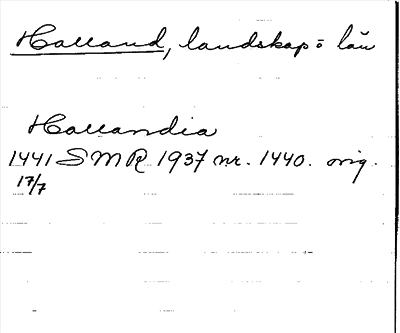 Halland, landskap o län
Hallandia
1441 SMR 1937 nr. 1440. orig.
17/7